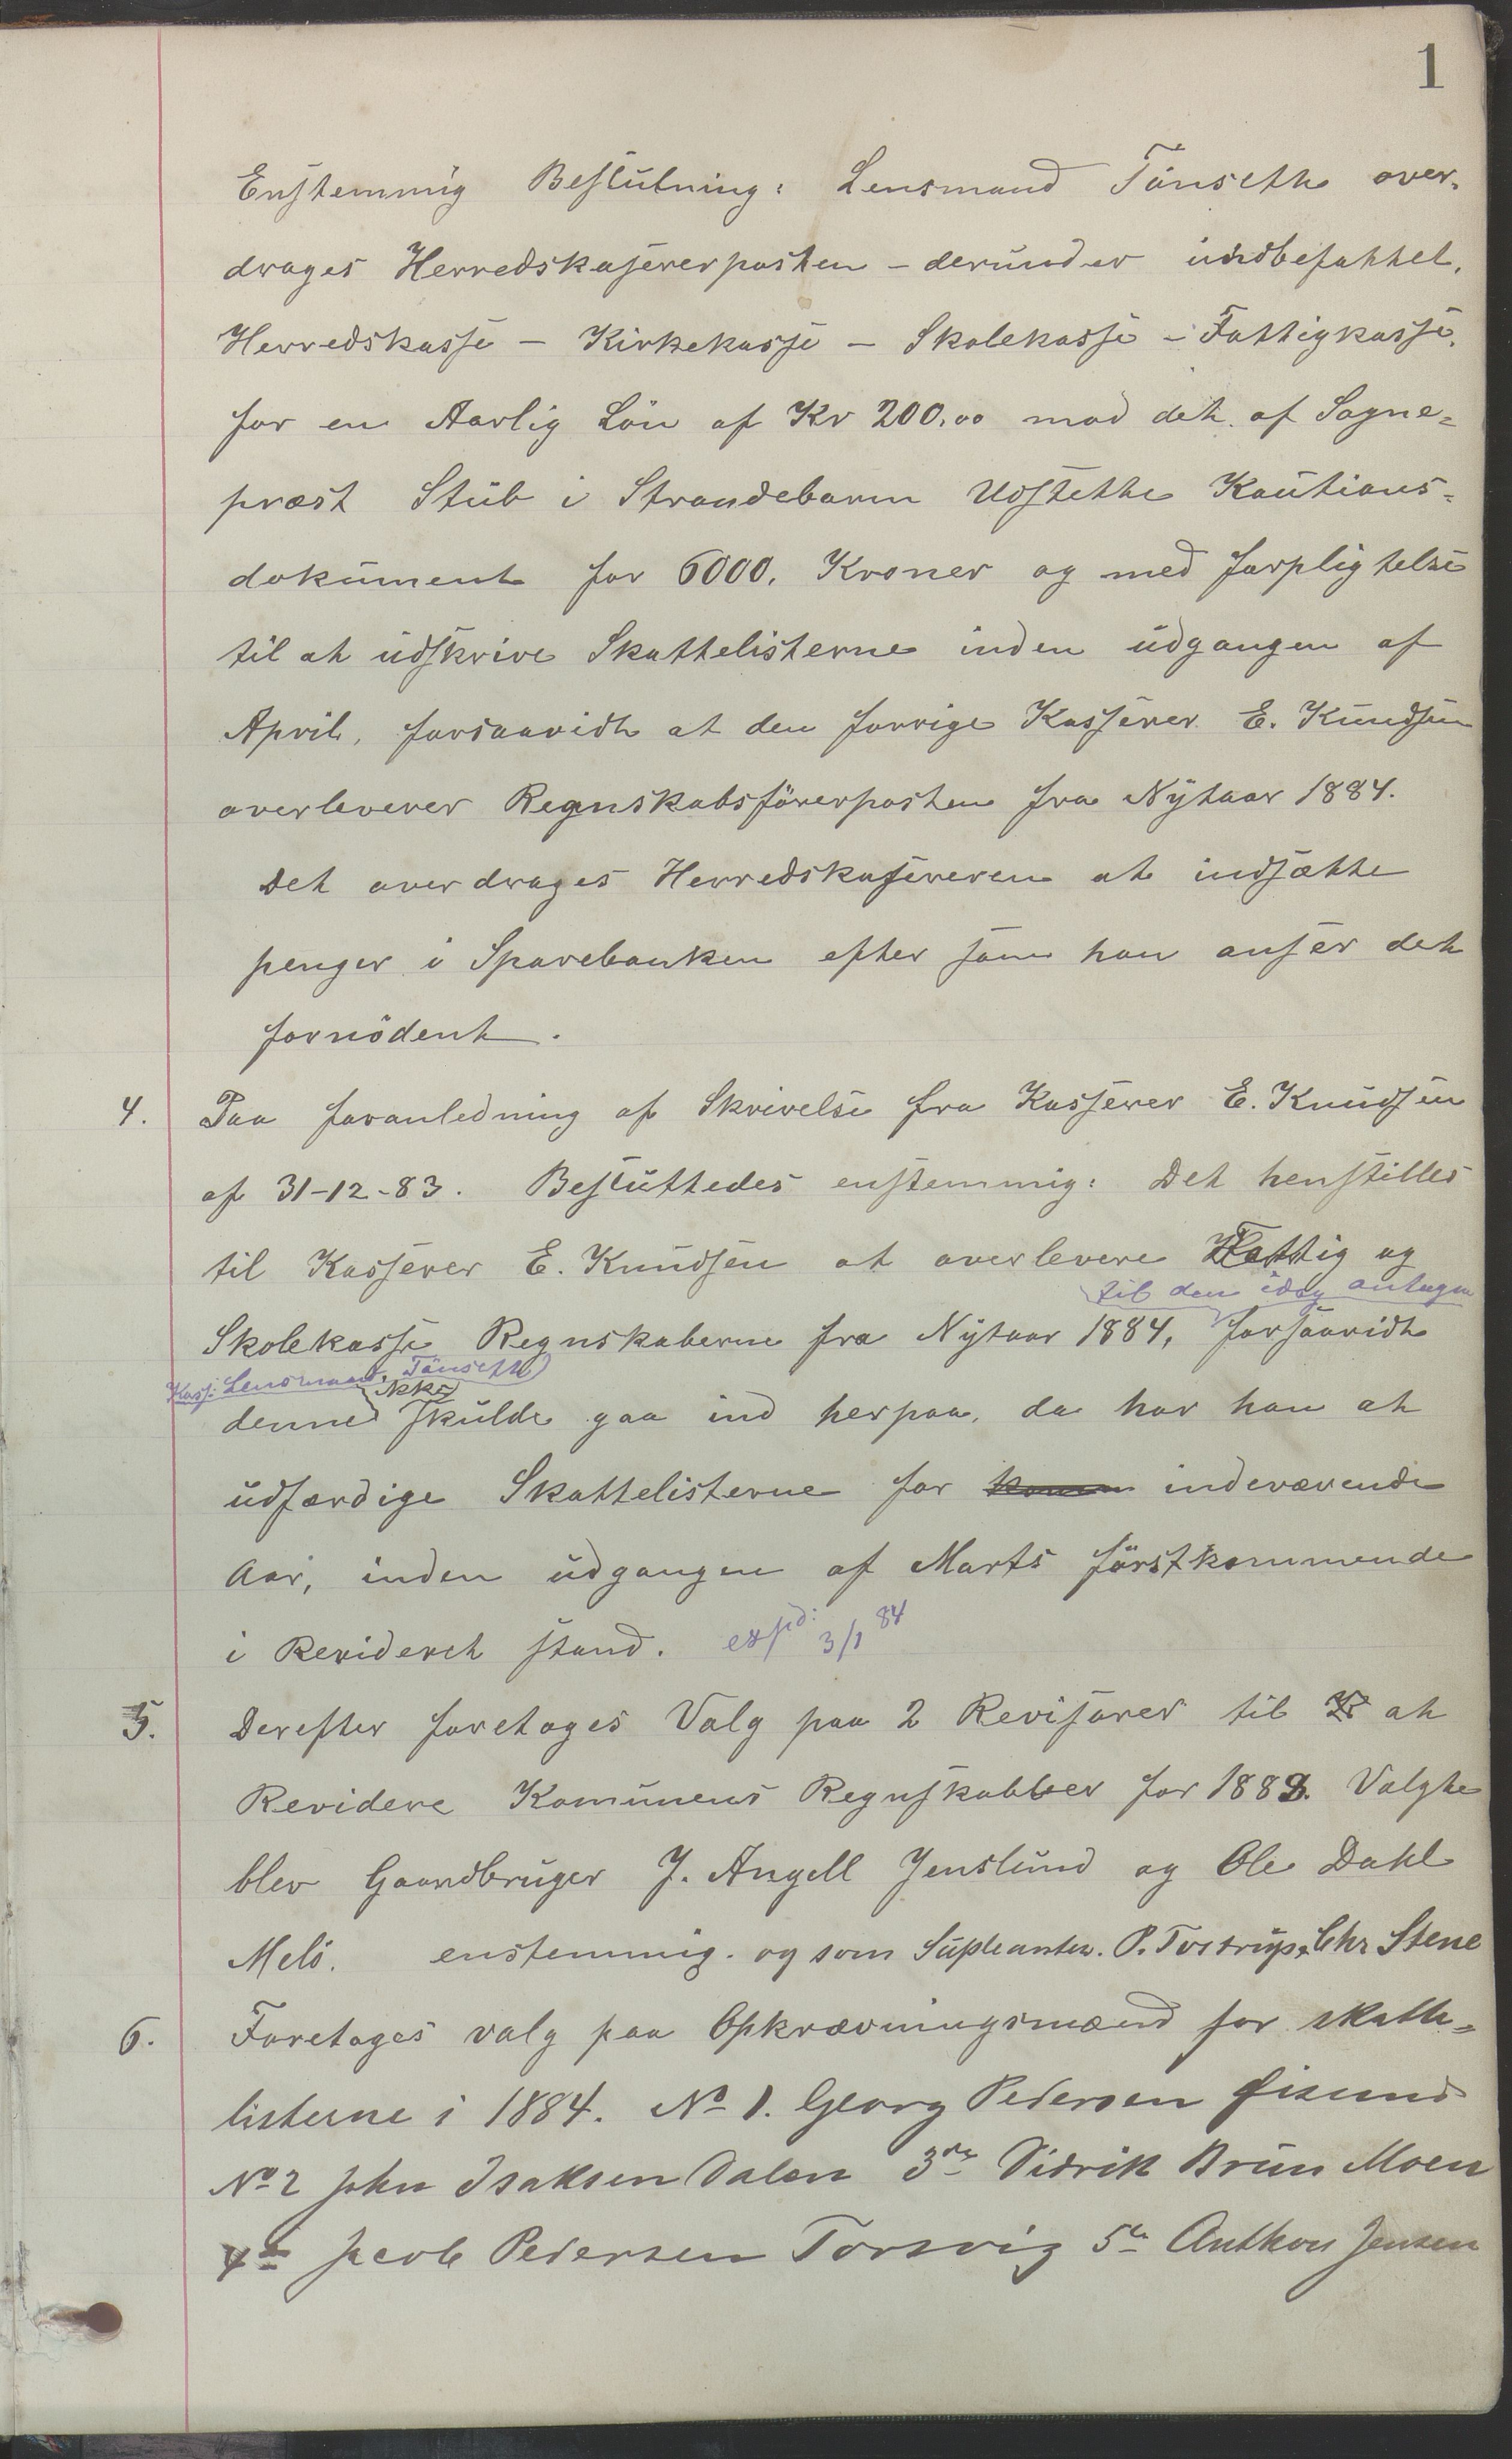 1
Enstemmig Beslutning: Lensmand Tönseth over-
drages Herredskasererposten - derunder indbefattet.
Herredskasse - Kirkekasse - Skolekasse - Fattigkasse.
for en Aarlig Lön af Kr 200.00 mod det af Sogne=
præst Stub i Strandebarm Udstette Kautions=
dokument for 6000. Kroner og med forpligtelse
til at udskrive Skattelisterne inden udgangen af
April, forsaavidt at den forrige Kasserer E. Kundsen
overleverer Regnskabsförerposten fra Nytaar 1884.
Det overdrages Herredskasereren at indsætte
penger i Sparebanken efter som han anser det
fornödent.
4. Paa foranledning af Skrivelse fra Kasserer E. Knudsen
af 31-12-83. Besluttedes enstemmig: Det henstilles
til Kasserer E. Knudsen at overlevere Fattig og
til den idag antagne
Skolekasse Regnskaberne fra Nytaar 1884, forsaavidt
Kass: Lensmand, Tönseth
ikke
denne skulde gaa ind herpaa, da har han at
udfærdige Skattelisterne for indeværende
Aar, inden udgangen af Marts förstkommende
i Revideret stand. expd: 3/1 84
5. Derefter foretages Valg paa 2 Revisorer til at
Revidere Komunens Regnskabber for 1883. Valgte
blev Gaardbruger J. Angell Jenslund og Ole Dahl
Melö. enstemmig. og som Supleanter. P. Tostrup, Chr Stene
6. Foretages valg paa Opkrævningsmænd for skatte=
listerne i 1884. No 1. Georg Pedersen
No 2 John Isaksen Dalen 3die Didrik Brun Moen
4de Jacob Pedersen Torsvig 5te Anthon Jensen